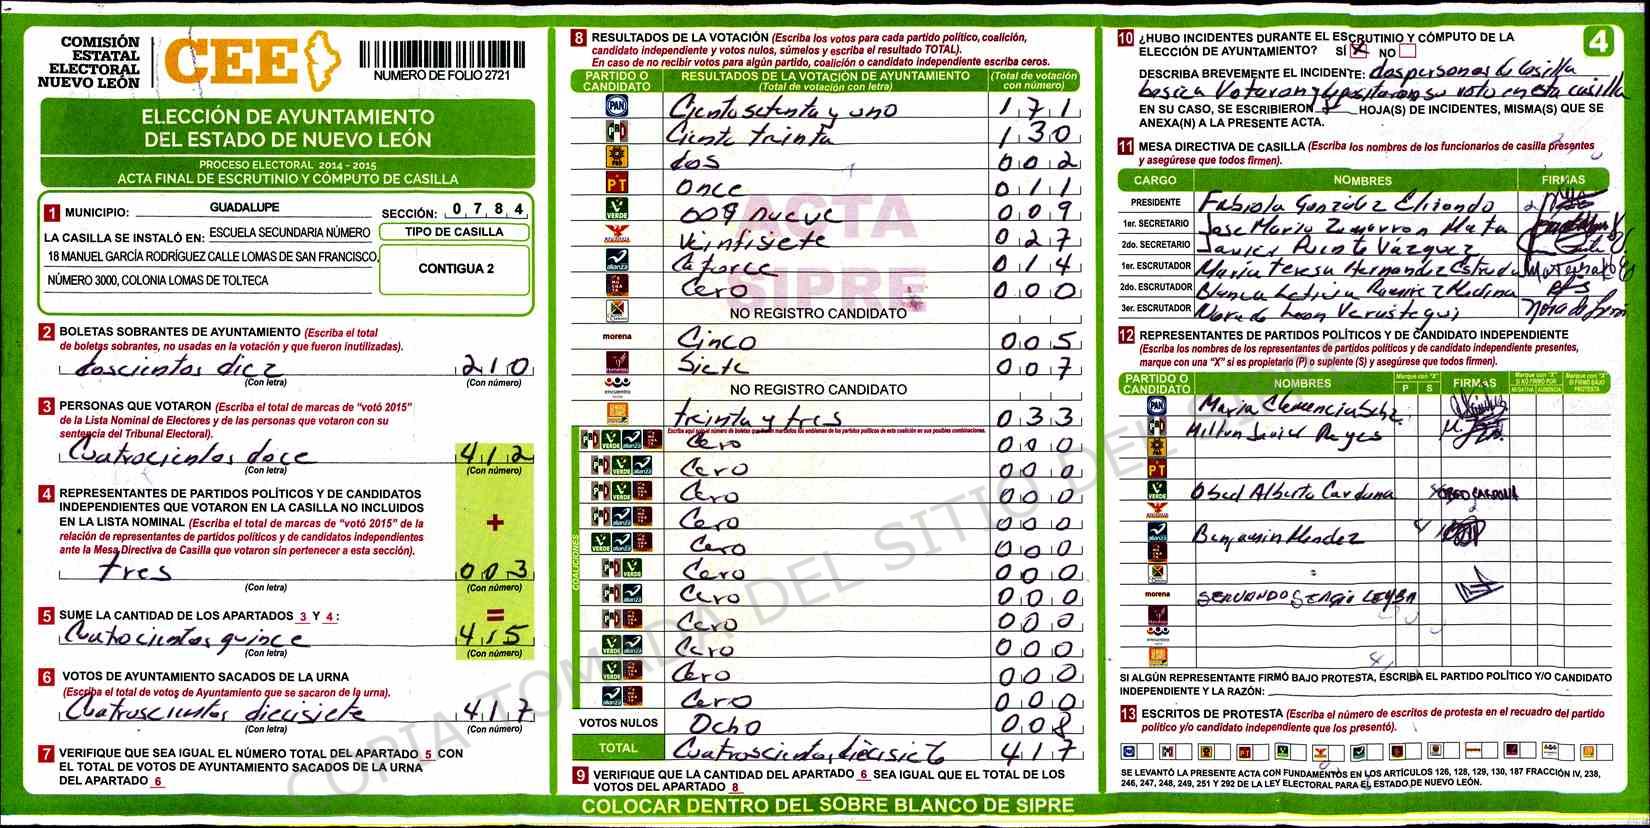 COMISIÓN
ESTATAL
ELECTORAL
NUEVO LEÓN
CEE
NUMERO DE FOLIO 2721
ELECCIÓN DE AYUNTAMIENTO
DEL ESTADO DE NUEVO LEÓN
PROCESO ELECTORAL 2014 - 2015
ACTA FINAL DE ESCRUTINIO Y CÓMPUTO DE CASILLA
1 MUNICIPIO: GUADALUPE SECCIÓN: 0 7 8 4
LA CASILLA SE INSTALÓ EN: ESCUELA SECUNDARIA NÚMERO
18 MANUEL GARCÍA RODRÍGUEZ CALLE LOMAS DE SAN FRANCISCO,
NÚMERO 3000, COLONIA LOMAS DE TOLTECA
TIPO DE CASILLA
CONTIGUA 2
2 BOLETAS SOBRANTES DE AYUNTAMIENTO (Escriba el total
de boletas sobrantes, no usadas en la votación y que fueron inutilizadas).
doscientos diez 210
(Con letra) (Con número)
3 PERSONAS QUE VOTARON (Escriba el total de marcas de "votó 2015"
de la Lista Nominal de Electores y de las personas que votaron con su
sentencia del Tribunal Electoral).
Cuatrocientos doce 412
(Con letra) (Con número)
4 REPRESENTANTES DE PARTIDOS POLÍTICOS Y DE CANDIDATOS
INDEPENDIENTES QUE VOTARON EN LA CASILLA NO INCLUIDOS
EN LA LISTA NOMINAL (Escriba el total de marcas de "votó 2015" de la
relación de representantes de partidos políticos y de candidatos independientes
ante la Mesa Directiva de Casilla que votaron sin pertenecer a esta sección).
+
tres 003
(Con letra) (Con número)
5 SUME LA CANTIDAD DE LOS APARTADOS 3 Y 4 : =
Cuatrocientos quince 415
(Con letra) (Con número)
6 VOTOS DE AYUNTAMIENTO SACADOS DE LA URNA
(Escriba el total de votos de Ayuntamiento que se sacaron de la urna).
Cuatroscientos diecisiete 417
(Con letra) (Con número)
7 VERIFIQUE QUE SEA IGUAL EL NÚMERO TOTAL DEL APARTADO 5 CON
EL TOTAL DE VOTOS DE AYUNTAMIENTO SACADOS DE LA URNA
DEL APARTADO 6
8 RESULTADOS DE LA VOTACIÓN (Escriba los votos para cada partido político, coalición,
candidato independiente y votos nulos, súmelos y escriba el resultado TOTAL).
En caso de no recibir votos para algún partido, coalición o candidato independiente escriba ceros.
PARTIDO O CANDIDATO RESULTADOS DE LA VOTACIÓN DE AYUNTAMIENTO (Total de votación con letra) (Total de votación con número)
PAN Ciento setenta y uno 171
PRI Ciento treinta 130
PRD dos 002
PT Once 011
VERDE nueve 009
Veintisiete 027
alianza Catorce 014
Cero 000
NO REGISTRO CANDIDATO
morena Cinco 005
Siete 007
encuentro NO REGISTRO CANDIDATO
treinta y tres 033
COALICIONES
PRI VERDE alianza Cero 000
PRI VERDE alianza Cero 000
PRI VERDE Cero 000
PRI alianza Cero 000
VERDE alianza Cero 000
PRI VERDE Cero 000
PRI alianza Cero 000
PRI Cero 000
VERDE alianza Cero 000
VERDE Cero 000
alianza Cero 000
VOTOS NULOS Ocho 008
TOTAL Cuatroscientos diecisiete 417
9 VERIFIQUE QUE LA CANTIDAD DEL APARTADO 6 SEA IGUAL QUE EL TOTAL DE LOS
VOTOS DEL APARTADO 8
ACTA
SIPRE
COPIA TOMADA DEL SITIO DEL SIPRE
COLOCAR DENTRO DEL SOBRE BLANCO DE SIPRE
4
10 ¿HUBO INCIDENTES DURANTE EL ESCRUTINIO Y CÓMPUTO DE LA
ELECCIÓN DE AYUNTAMIENTO? SÍ X NO
DESCRIBA BREVEMENTE EL INCIDENTE: dos personas de casilla
basica Votaron y depositaron su voto en esta casilla
EN SU CASO, SE ESCRIBIERON HOJA(S) DE INCIDENTES, MISMA(S) QUE SE
ANEXA(N) A LA PRESENTE ACTA.
11 MESA DIRECTIVA DE CASILLA (Escriba los nombres de los funcionarios de casilla presentes
y asegúrese que todos firmen).
CARGO NOMBRES FIRMAS
PRESIDENTE Fabiola González Elizondo
1er. SECRETARIO Jose Mario Zamarron Mata
2do. SECRETARIO Javier Puente Vázquez
1er. ESCRUTADOR Maria Teresa Hernandez Estrada
2do. ESCRUTADOR Blanca Leticia Ramirez Medina
3er. ESCRUTADOR Nora de Leon Verastegui
12 REPRESENTANTES DE PARTIDOS POLÍTICOS Y DE CANDIDATO INDEPENDIENTE
(Escriba los nombres de los representantes de partidos políticos y de candidato independiente presentes,
marque con una "X" si es propietario (P) o suplente (S) y asegúrese que todos firmen).
PARTIDO O CANDIDATO NOMBRES Marque con "X" P S FIRMAS Marque con "X" SI NO FIRMÓ POR NEGATIVA AUSENCIA Marque con "X" SI FIRMÓ BAJO PROTESTA
PAN Maria Clemencia
PRI Milton Javier Reyes
PT
VERDE Obed Alberto Cardona
alianza Benjamin Mendez
morena SERVANDO SERGIO LEYBA
SI ALGÚN REPRESENTANTE FIRMÓ BAJO PROTESTA, ESCRIBA EL PARTIDO POLÍTICO Y/O CANDIDATO
INDEPENDIENTE Y LA RAZÓN:
13 ESCRITOS DE PROTESTA (Escriba el número de escritos de protesta en el recuadro del partido
político y/o candidato independiente que los presentó).
SE LEVANTÓ LA PRESENTE ACTA CON FUNDAMENTOS EN LOS ARTÍCULOS 126, 128, 129, 130, 187 FRACCIÓN IV, 238,
246, 247, 248, 249, 251 Y 292 DE LA LEY ELECTORAL PARA EL ESTADO DE NUEVO LEÓN.